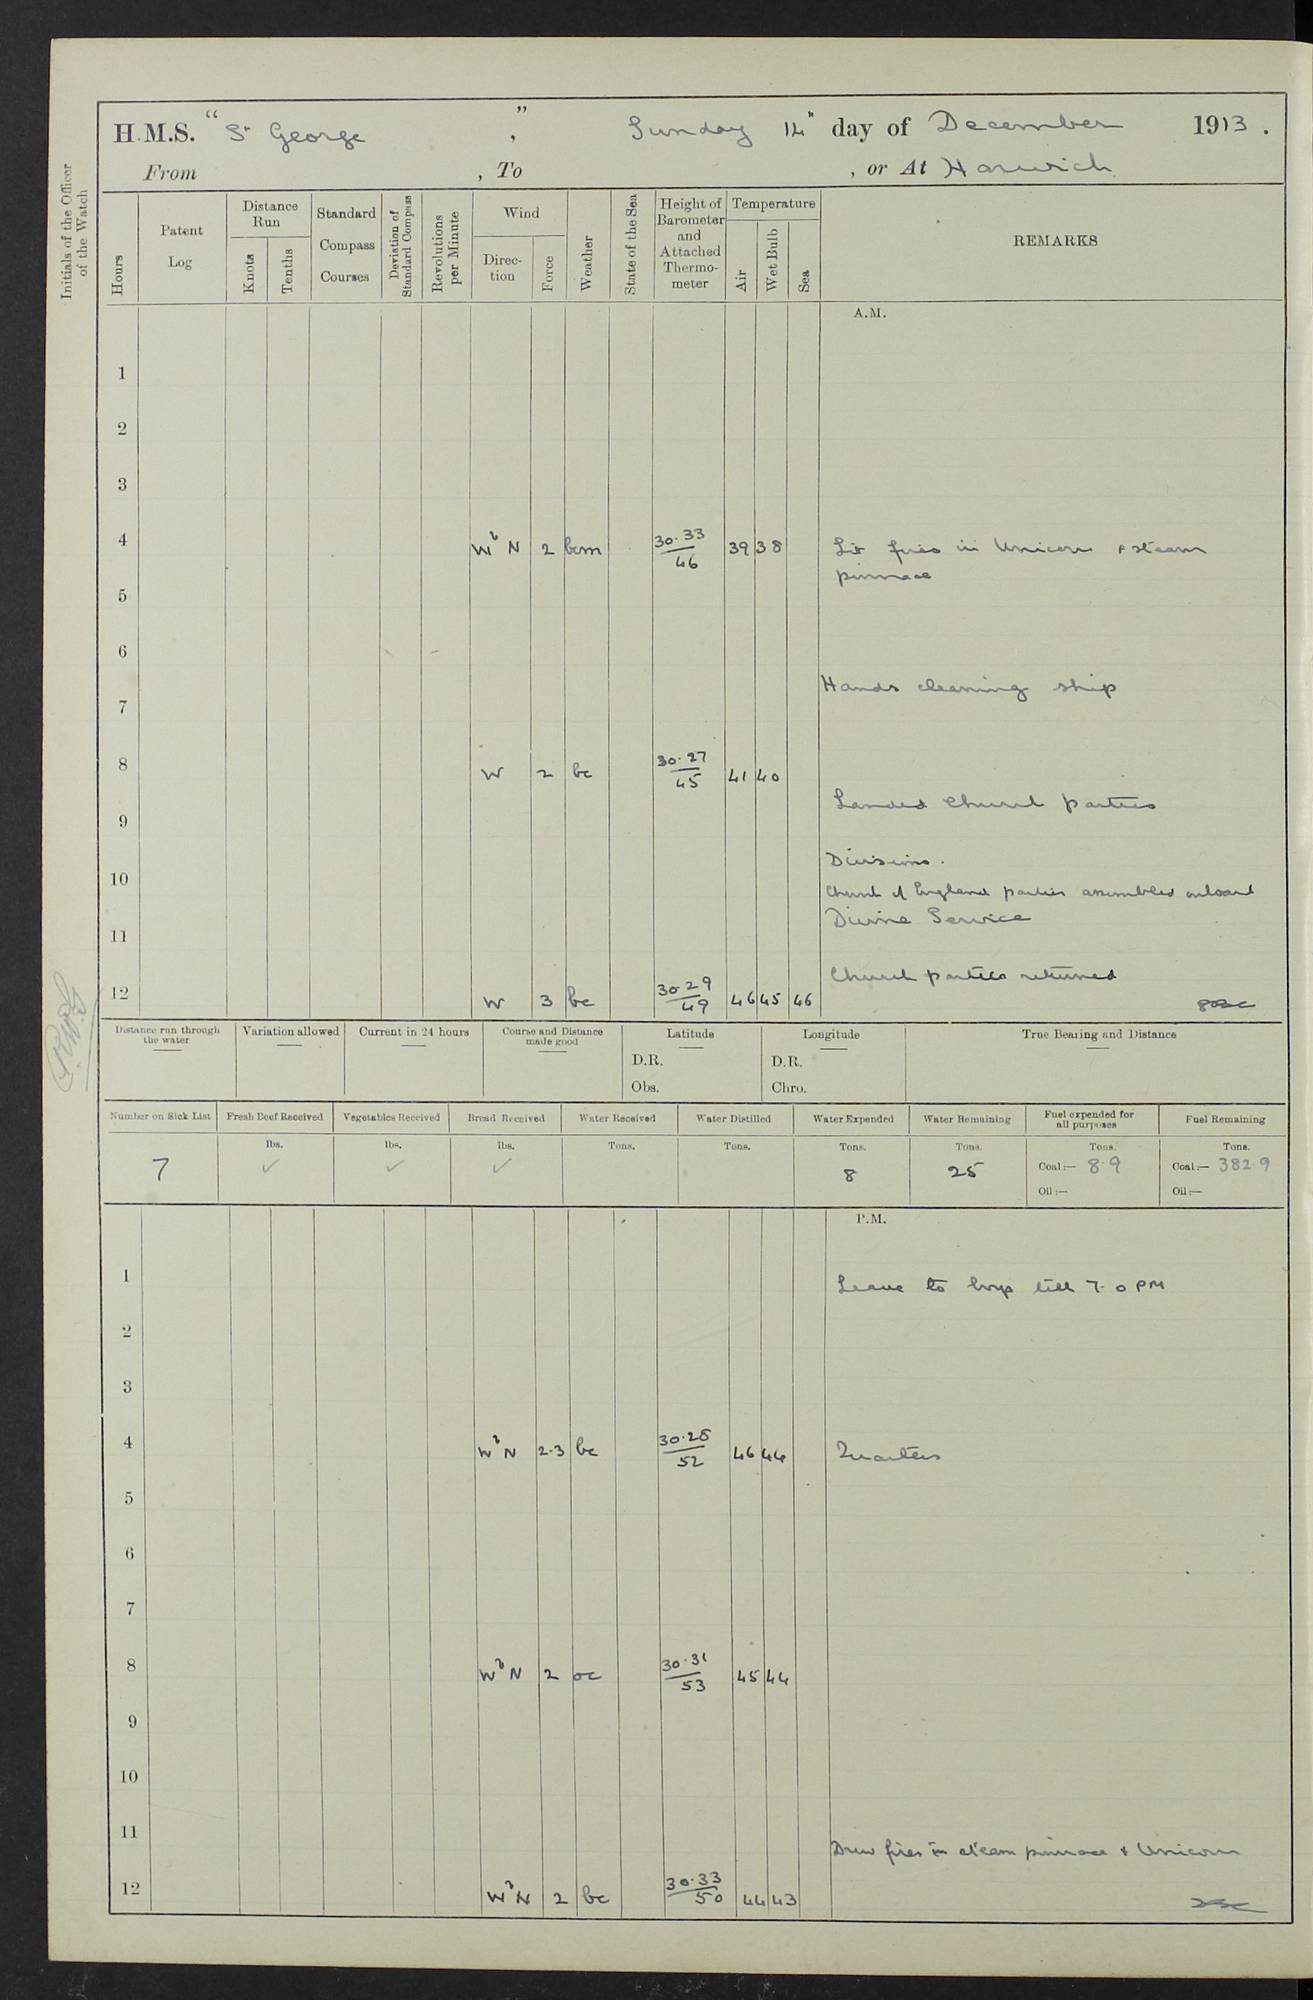 H.M.S. "St George", Sunday 14th day of December 1913.
From , To , or At Harwich
Initials of the Officer of the Watch
Hours
Patent Log
Distance Run
Knots
Tenths
Standard Compass Courses
Deviation of Standard Compass
Revolutions per Minute
Wind
Direction
Force
Weather
State of the Sea
Height of Barometer and Attached Thermometer
Temperature
Air
Wet Bulb
Sea
REMARKS
A.M.
1
2
3
4 WbN 2 bcm 30.33 46 39 38 Lit fires in Unicorn & steam
pinnace
5
6
Hands cleaning ship
7
8 W 2 bc 30.27 45 41 40
Landed Church parties
9
Divisions.
10
Church of England parties assembled onboard
Divine Service
11
Church parties returned
12 W 3 bc 30.29 49 46 45 46
Distance run through the water
Variation allowed
Current in 24 hours
Course and Distance made good
Latitude
D.R.
Obs.
Longitude
D.R.
Chro.
True Bearing and Distance
Number on Sick List
Fresh Beef Received
Vegetables Received
Bread Received
Water Received
Water Distilled
Water Expended
Water Remaining
Fuel expended for all purposes
Fuel Remaining
7
lbs. ✓
lbs. ✓
lbs. ✓
Tons.
Tons.
Tons. 8
Tons. 25
Tons.
Coal:— 8.9
Oil:—
Tons.
Coal:— 382.9
Oil:—
P.M.
1 Leave to boys till 7.0 PM
2
3
4 WbN 2.3 bc 30.28 52 46 44 Quarters
5
6
7
8 WbN 2 oc 30.31 53 45 44
9
10
11
Drew fires in steam pinnace & Unicorn
12 WbN 2 bc 30.33 50 44 43